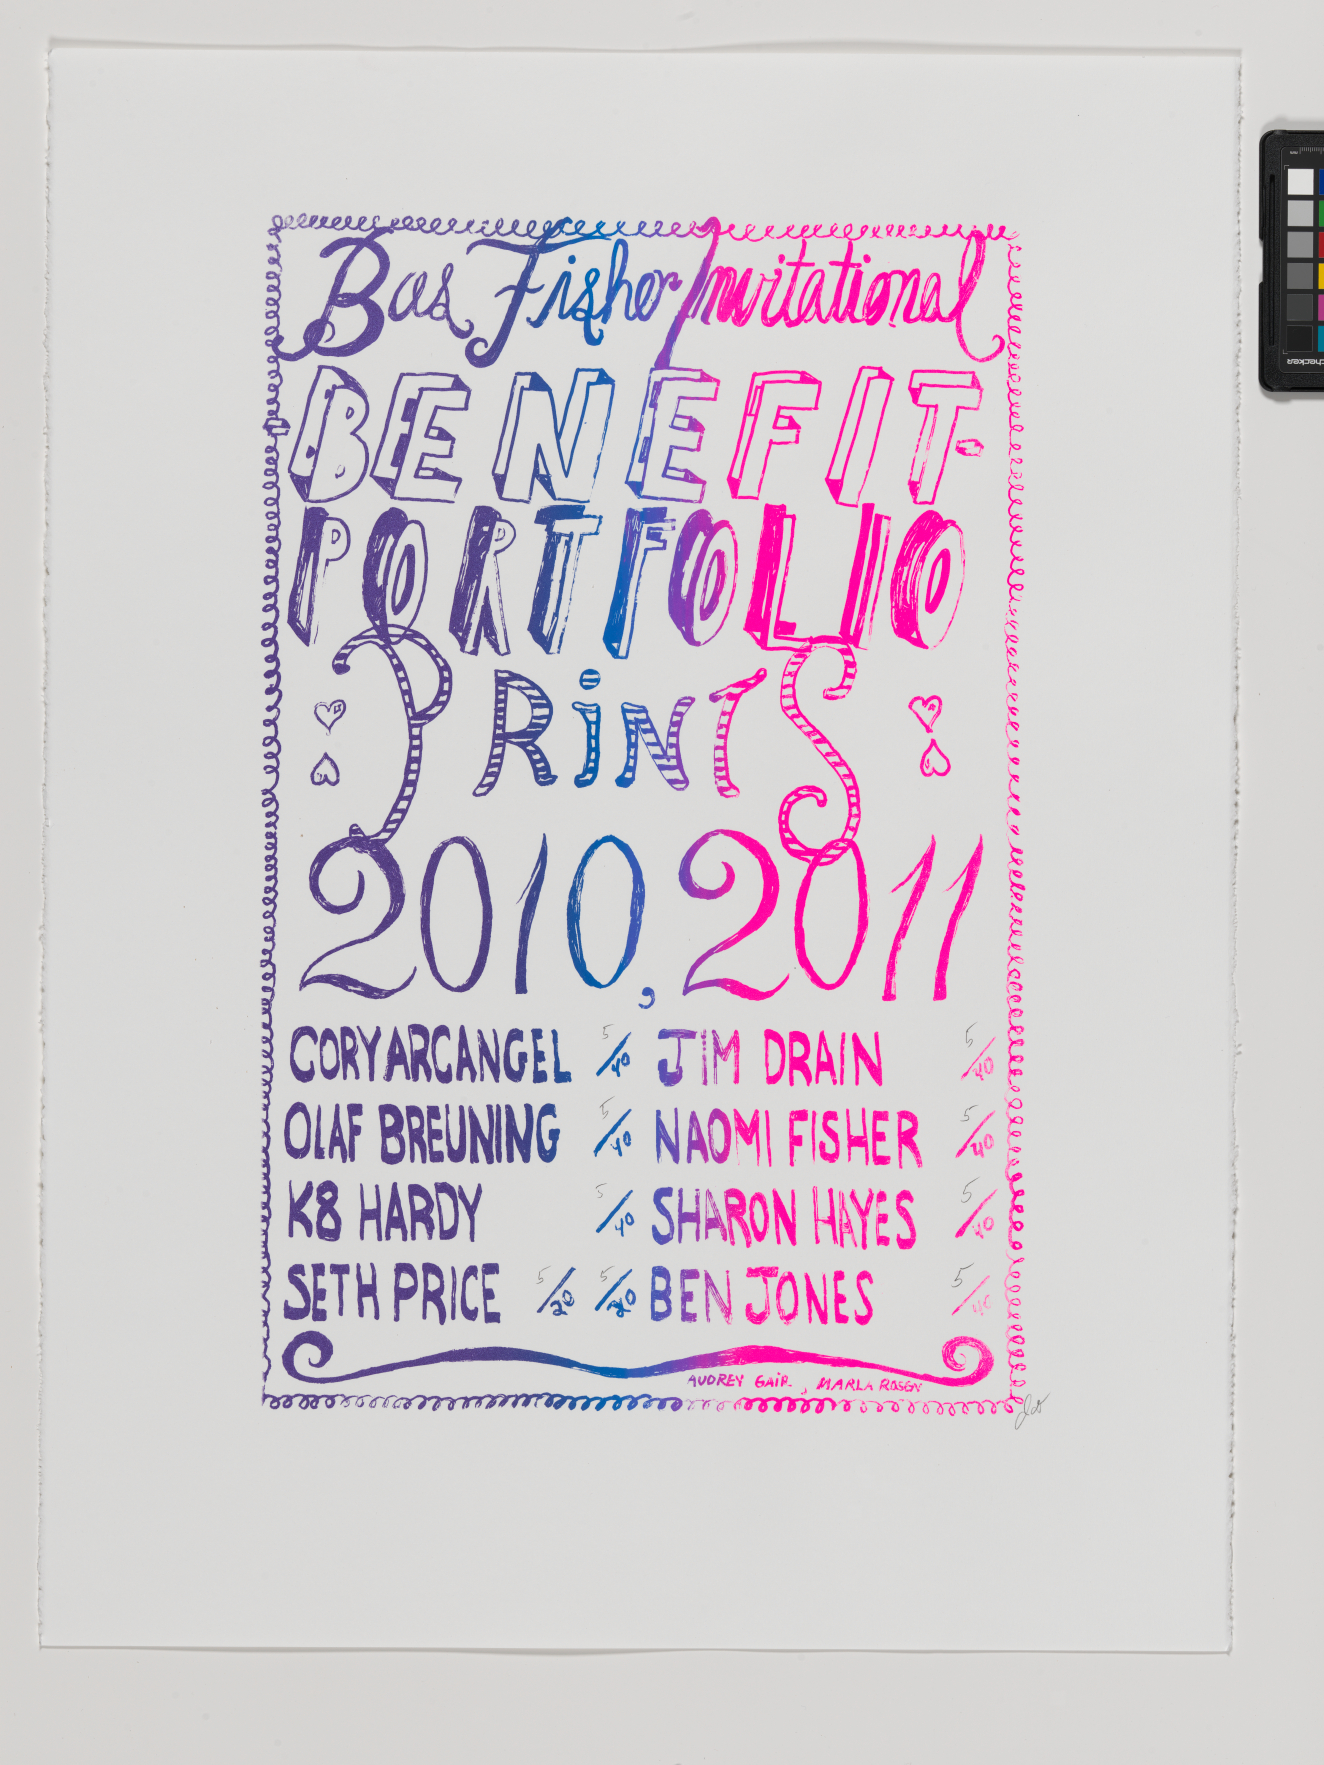 Bas Fisher Invitational
BENEFIT
PORTFOLIO
PRiNTS
2010, 2011
CORY ARCANGEL 5/40 JIM DRAIN 5/40
OLAF BREUNING 5/40 NAOMI FISHER 5/40
K8 HARDY 5/40 SHARON HAYES 5/40
SETH PRICE 5/20 5/20 BEN JONES 5/40
AUDREY GAIR, MARLA ROSEN